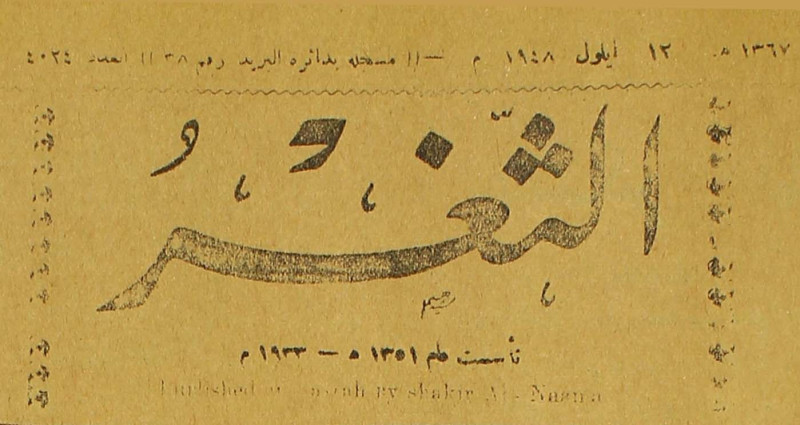 ١٣٦٧ هـ ١٢ أيلول ١٩٤٨ م —(( مسجله بدائره البريد رقم ٣٨ )) العدد ٤٠٢٤
الثغر
تأسست عام ١٣٥١ ه — ١٩٣٣ م
Published by shakir Al-